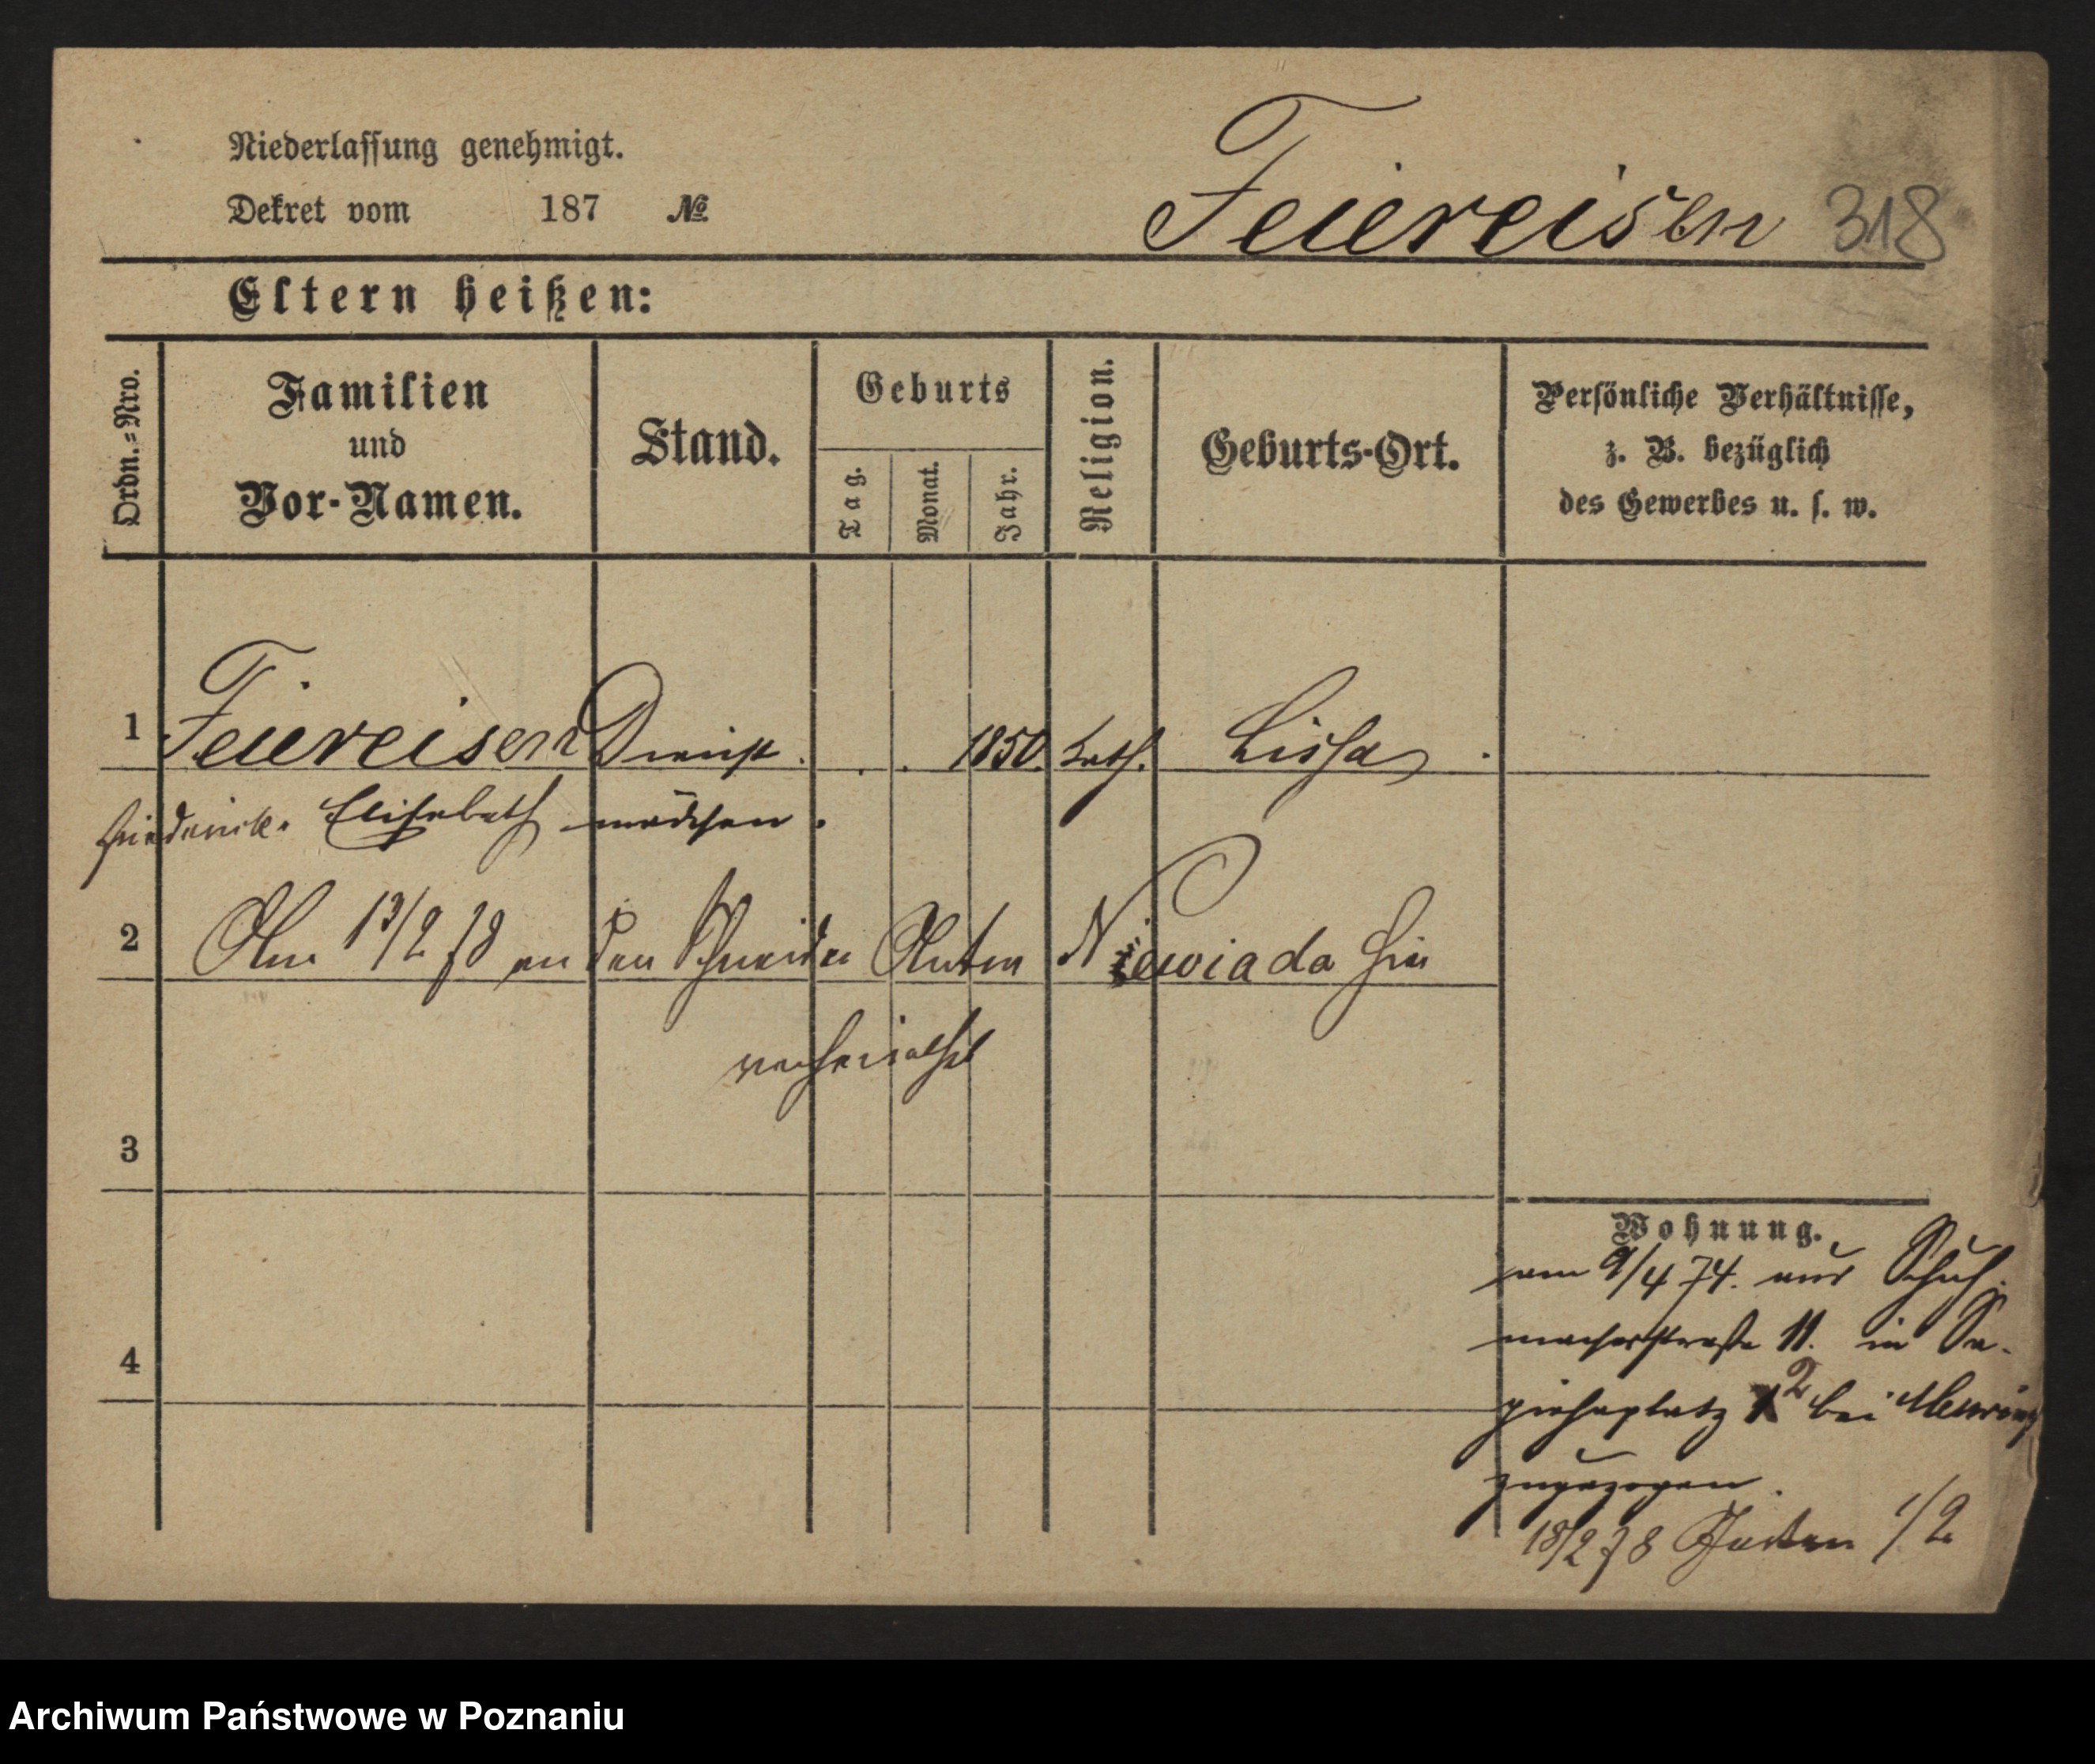 Niederlassung genehmigt.
Dekret vom 187 №
Feuereisen 318
Eltern heißen:
Ordn.=Nro.
Familien
und
Vor-Namen.
Stand.
Geburts
Tag.
Monat.
Jahr.
Religion.
Geburts-Ort.
Persönliche Verhältnisse,
z. B. bezüglich
des Gewerbes u. s. w.
1 Feuereisen Dienst . . . 1850. kath. Lissa .
Friederike Elisabeth mädchen.
2 Am 13/2 78 an den Schneider Anton Niewiada hier
verheirathet
3
4
Wohnung.
am 9/4 74. aus Schuh-
macherstraße 11. in Sa-
piehaplatz 2 bei
zugezogen.
18/2 78 1/2
Archiwum Państwowe w Poznaniu